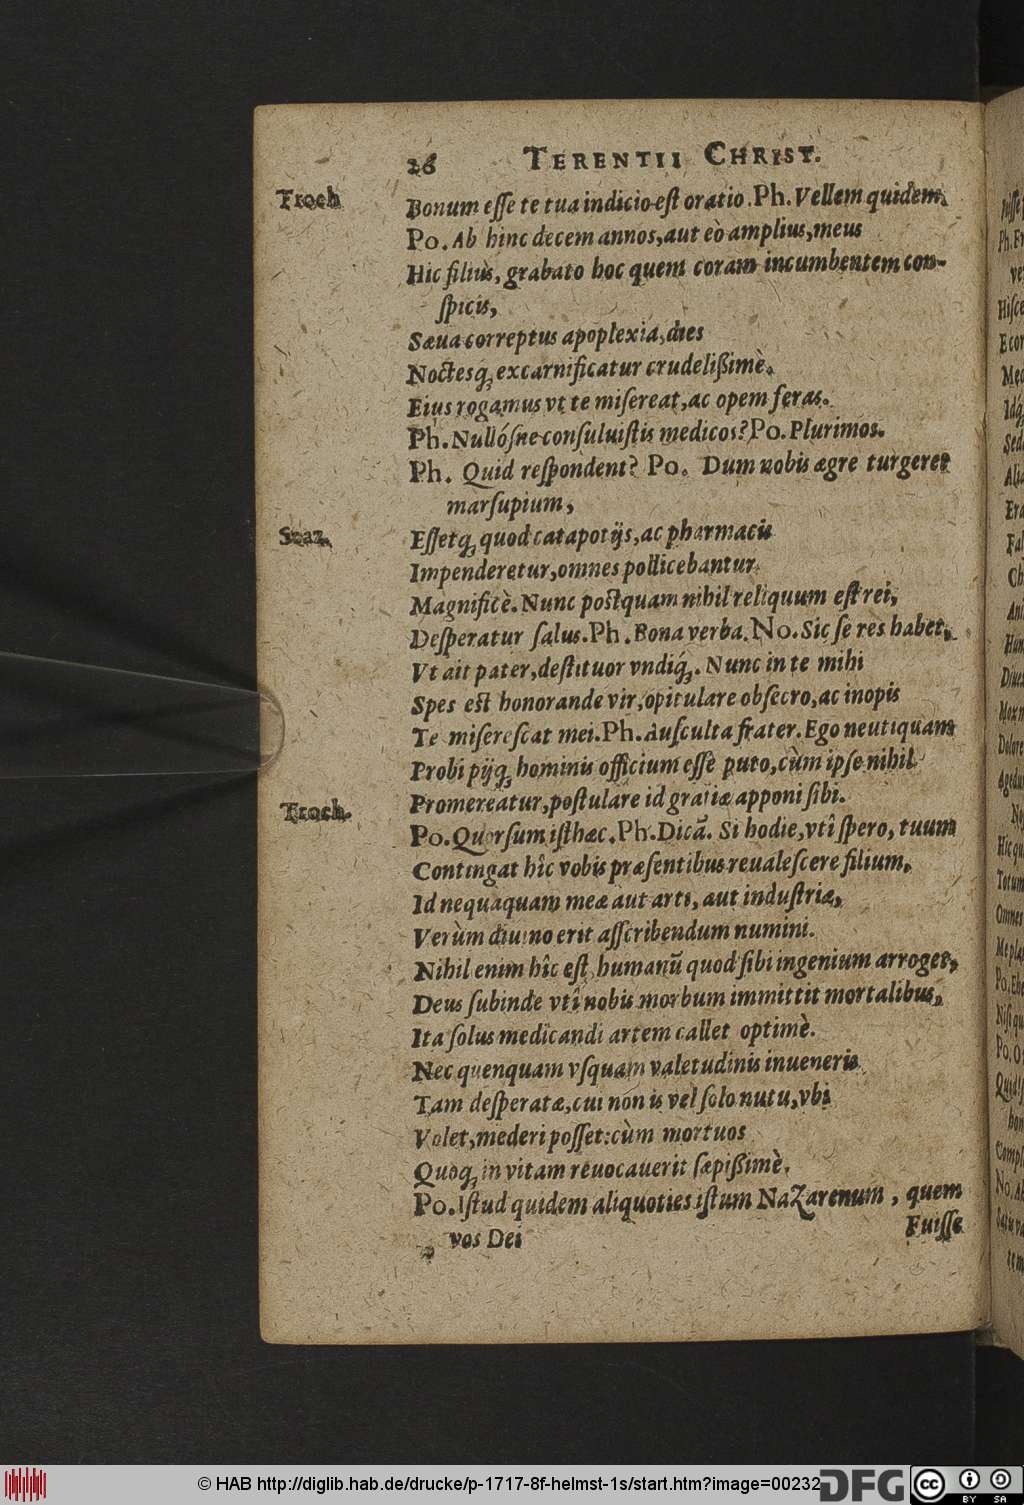 26 TERENTII CHRIST.
Troch Bonum eſſe te tua indicio eſt oratio. Ph. Vellem quidem.
Po. Ab hinc decem annos, aut eò amplius, meus
Hic filius, grabato hoc quem coram incumbentem con-
ſpicis,
Sæua correptus apoplexia, dies
Noctesq́; excarnificatur crudelißimè.
Eius rogamus vt te miſereat, ac opem feras.
Ph. Nullóſne conſuluiſtis medicos? Po. Plurimos.
Ph. Quid reſpondent? Po. Dum nobis ægre turgeret
marſupium,
Scaz. Eſſetq́; quod catapotijs, ac pharmacis
Impenderetur, omnes pollicebantur
Magnificè. Nunc poſtquam nihil reliquum eſt rei,
Deſperatur ſalus. Ph. Bona verba. No. Sic ſe res habet,
Vt ait pater, deſtituor vndiq́;. Nunc in te mihi
Spes eſt honorande vir, opitulare obſecro, ac inopis
Te miſereſcat mei. Ph. Auſculta frater. Ego neutiquam
Probi pijq́; hominis officium eſſe puto, cùm ipſe nihil
Promereatur, poſtulare id gratiæ apponi ſibi.
Troch. Po. Quorſum iſthæc. Ph. Dicã. Si hodie, vtî ſpero, tuum
Contingat hîc vobis præſentibus reualeſcere filium,
Id nequaquam meæ aut arti, aut induſtriæ,
Verùm diuino erit aſſcribendum numini.
Nihil enim hîc eſt humanũ quod ſibi ingenium arroget,
Deus ſubinde vtî nobis morbum immittit mortalibus,
Ita ſolus medicandi artem callet optimè.
Nec quenquam vſquam valetudinis inueneris
Tam deſperatæ, cui non is vel ſolo nutu, vbi
Volet, mederi poſſet: cùm mortuos
Quoq́; in vitam reuocauerit ſæpißimè.
Po. Iſtud quidem aliquoties iſtum NaZarenum, quem
vos Dei
Fuiſſe
© HAB http://diglib.hab.de/drucke/p-1717-8f-helmst-1s/start.htm?image=00232
DFG
cc BY SA